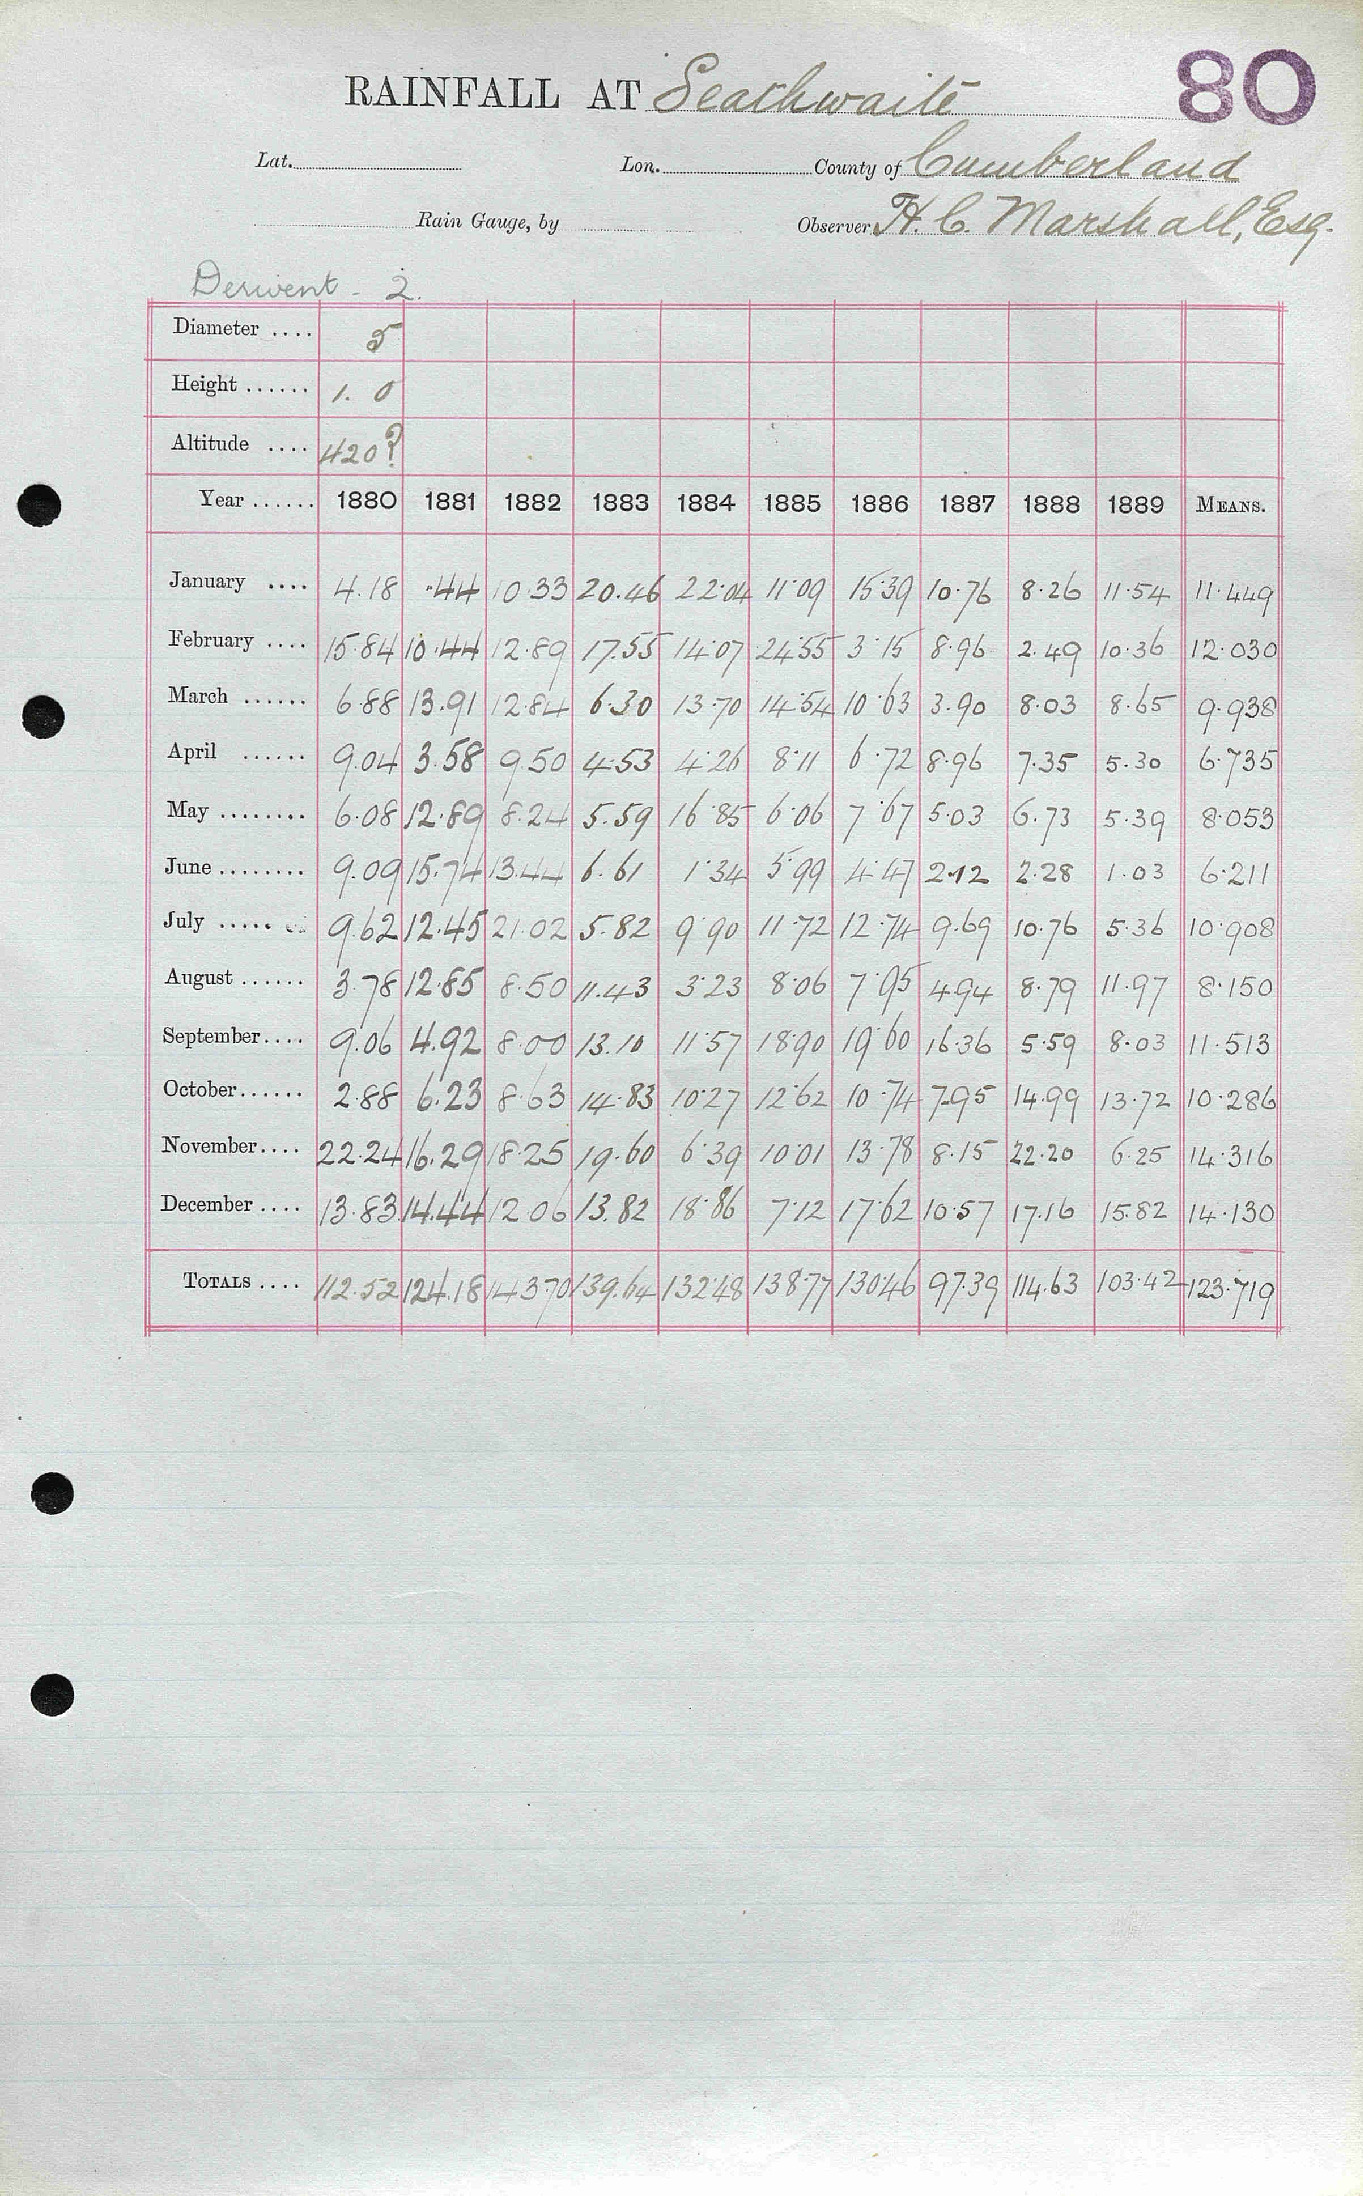 RAINFALL AT Seathwaite 80
Lat. Lon. County of Cumberland
Rain Gauge, by Observer H. C. Marshall, Esq.
Derwent - 2.
Diameter .... 5
Height ...... 1. 0
Altitude .... 420?
Year ...... 1880 1881 1882 1883 1884 1885 1886 1887 1888 1889 MEANS.
January .... 4.18 .44 10.33 20.46 22.04 11.09 15.39 10.76 8.26 11.54 11.449
February .... 15.84 10.44 12.89 17.55 14.07 24.55 3.15 8.96 2.49 10.36 12.030
March ...... 6.88 13.91 12.84 6.30 13.70 14.54 10.63 3.90 8.03 8.65 9.938
April ...... 9.04 3.58 9.50 4.53 4.26 8.11 6.72 8.96 7.35 5.30 6.735
May ........ 6.08 12.89 8.24 5.59 16.85 6.06 7.67 5.03 6.73 5.39 8.053
June ........ 9.09 15.74 13.44 6.61 1.34 5.99 4.47 2.12 2.28 1.03 6.211
July ..... 9.62 12.45 21.02 5.82 9.90 11.72 12.74 9.69 10.76 5.36 10.908
August ...... 3.78 12.85 8.50 11.43 3.23 8.06 7.95 4.94 8.79 11.97 8.150
September .... 9.06 4.92 8.00 13.10 11.57 18.90 19.60 16.36 5.59 8.03 11.513
October ...... 2.88 6.23 8.63 14.83 10.27 12.62 10.74 7.95 14.99 13.72 10.286
November .... 22.24 16.29 18.25 19.60 6.39 10.01 13.78 8.15 22.20 6.25 14.316
December .... 13.83 14.44 12.06 13.82 18.86 7.12 17.62 10.57 17.16 15.82 14.130
TOTALS .... 112.52 124.18 143.70 139.64 132.48 138.77 130.46 97.39 114.63 103.42 123.719